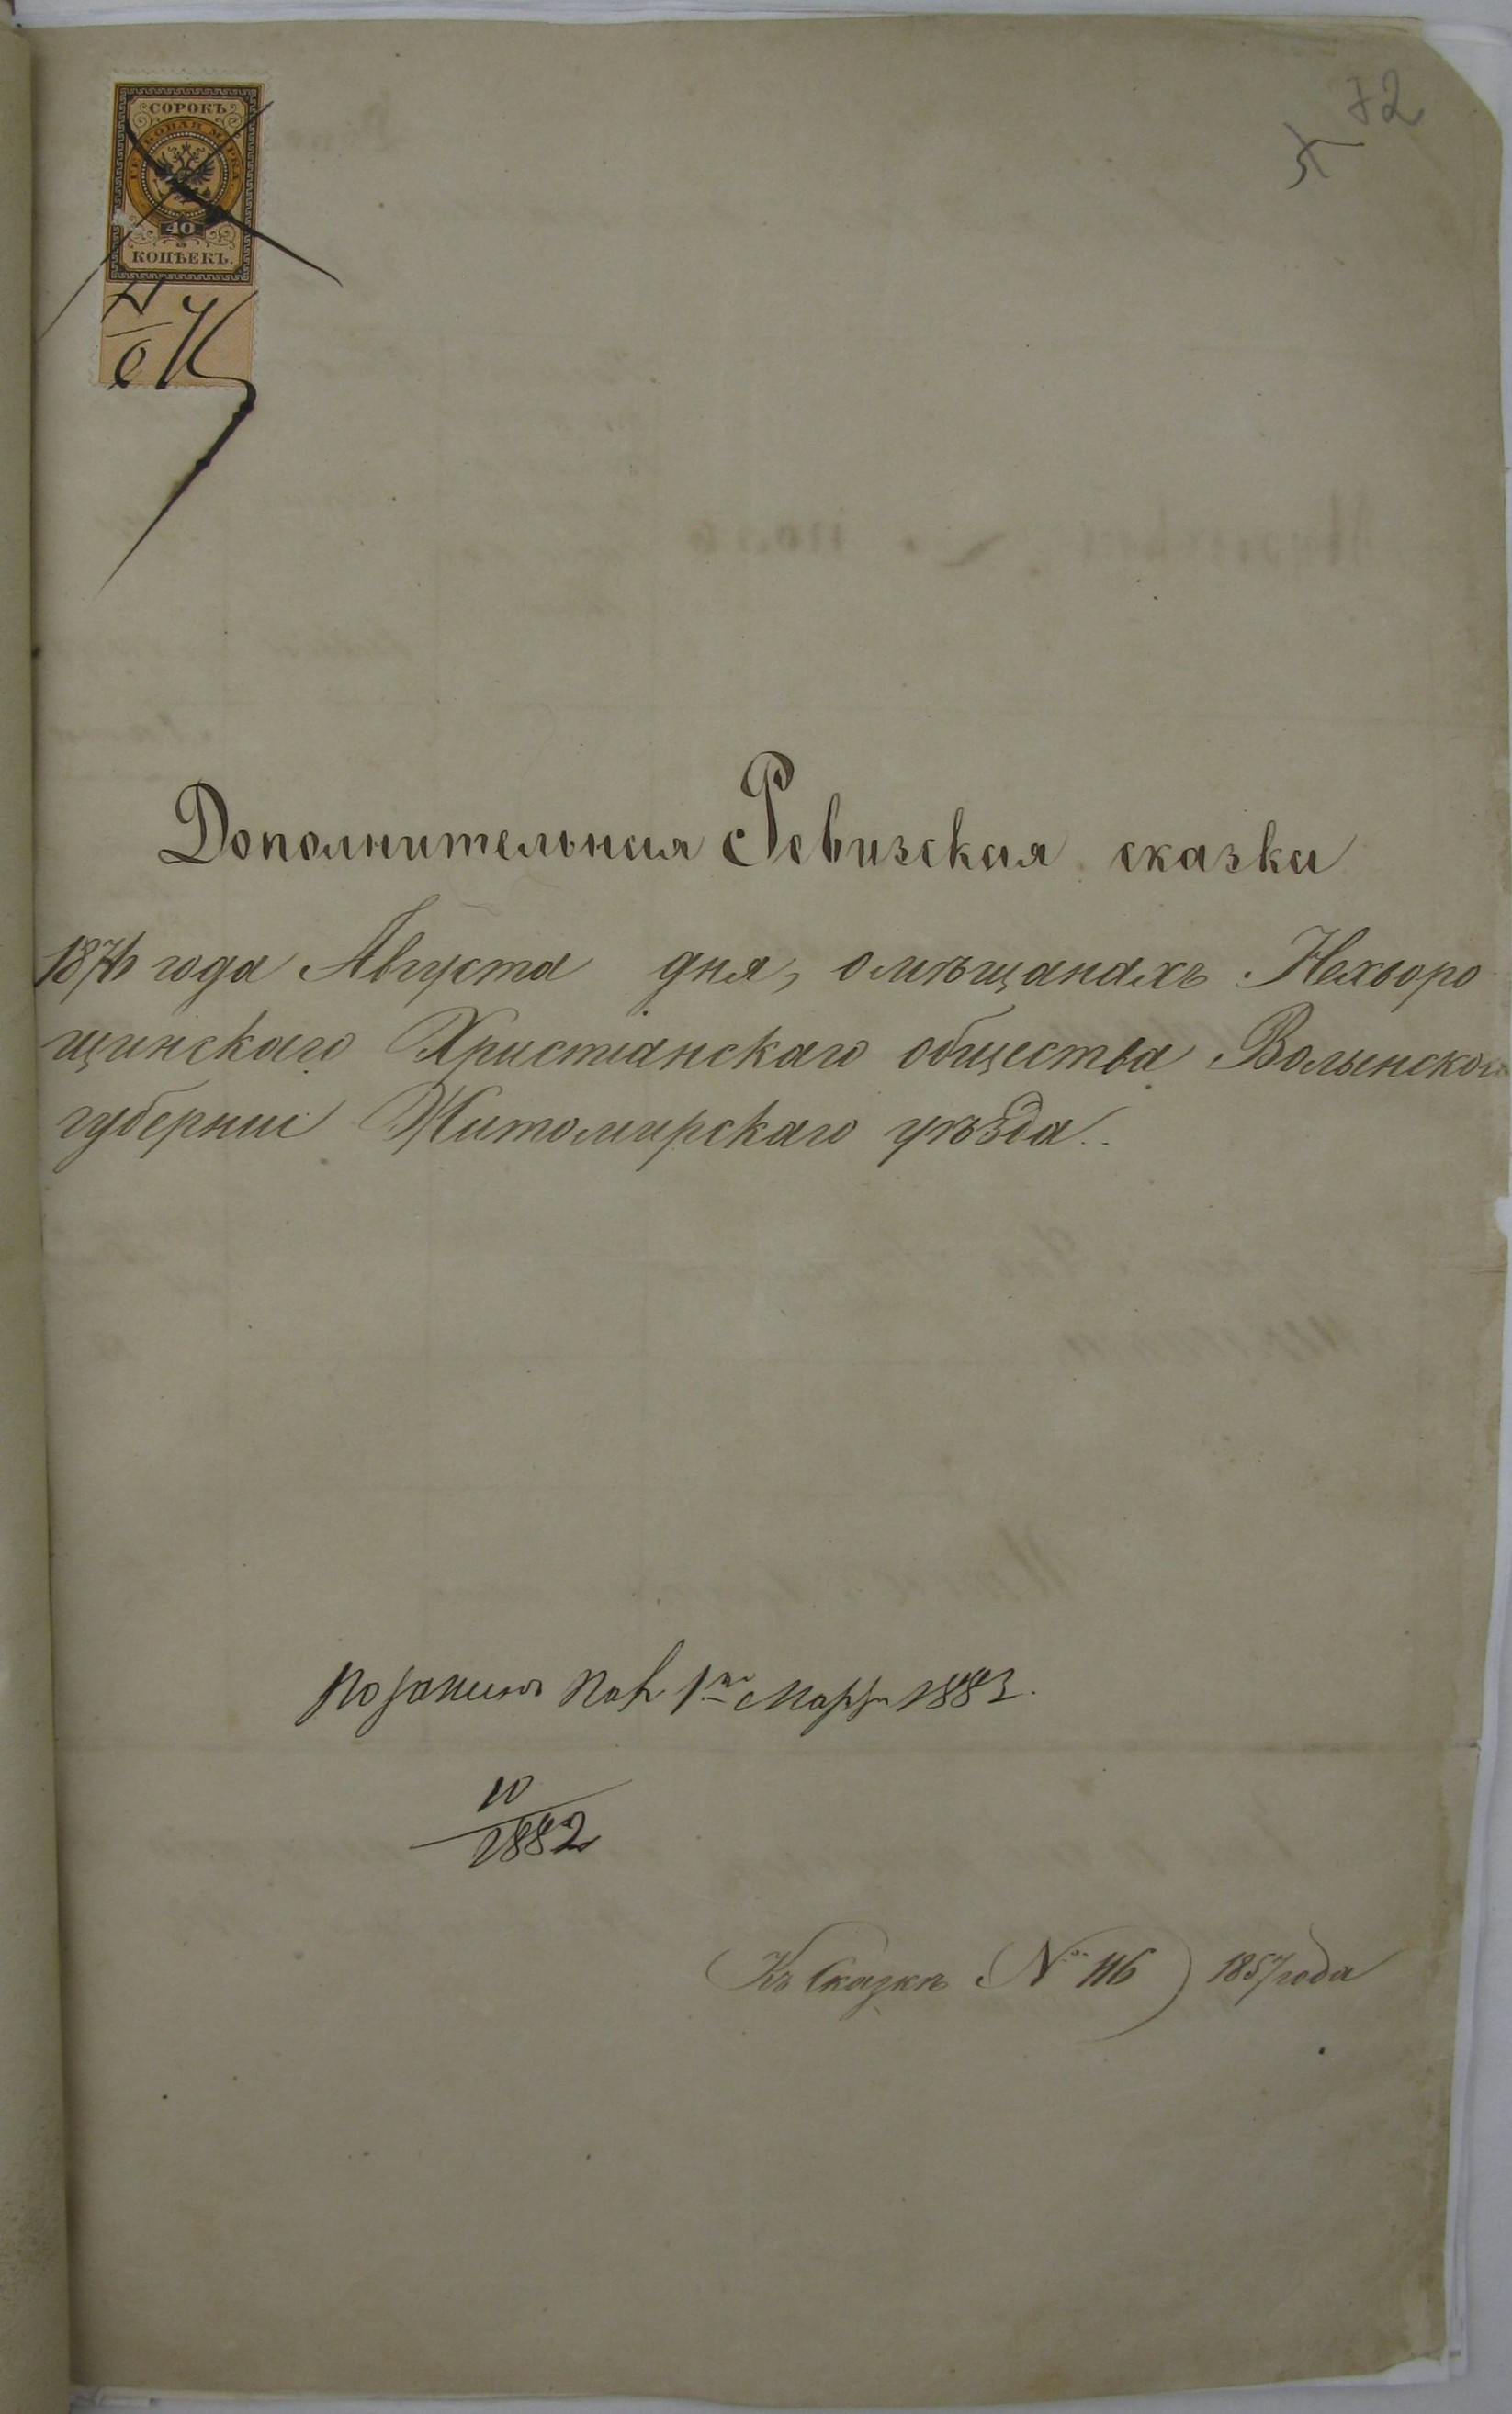 72
СОРОКЪ
ГЕРБОВАЯ МАРКА
40
КОПѢЕКЪ.
Дополнительная Ревизская сказка
1876 года Августа дня, о мѣщанахъ Нехворо
щинскаго Христіанскаго общества Волынской
губерніи Житомирскаго уѣзда.
1го Марта 1883.
10
1882
Къ Сказкѣ № 116) 1857 года